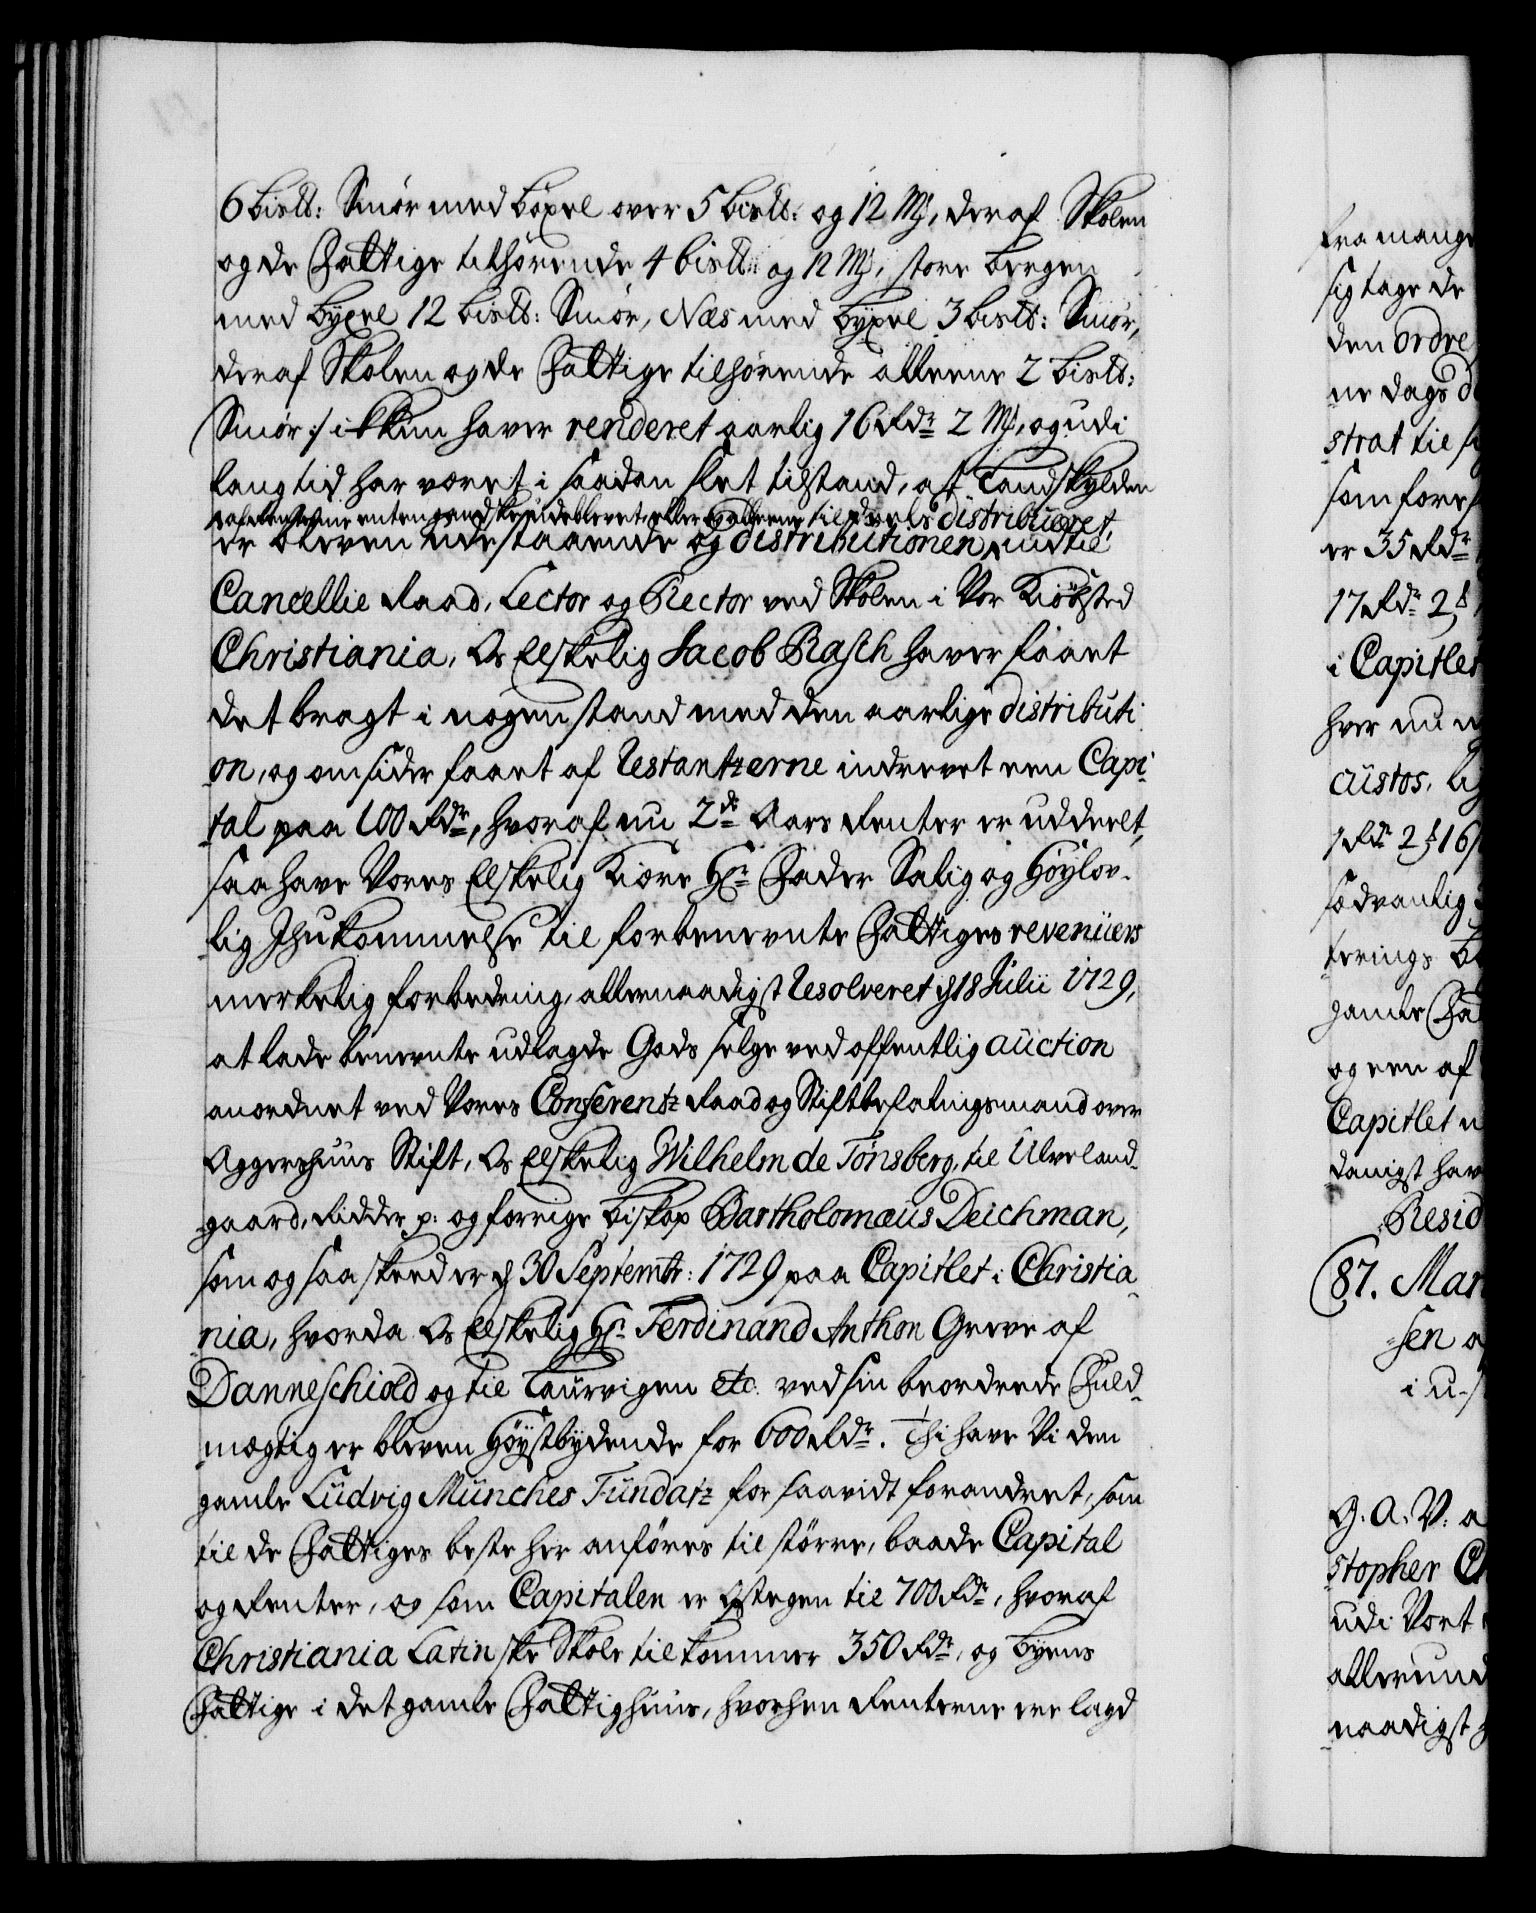 6 bis℔: Smør med böxel over 5 bis℔: og 12 Mk, deraf Skolen
og de Fattige tilhørende 4 bis℔: og 12 Mk, store Bergen
med byxel 12 bis℔: Smør, Næs med byxel 3 bis℔: Smør,
deraf Skolen og de Fattige tilhørende alleene 2 bis℔:
Smør :/ ikkun haver renderet aarlig 16 Rdr 2 Mk, og udi
lang tid har været i saadan slet tilstand, at Landskylden
enten gandske udeblevet, eller alleene til deels distribueret,
er bleven udestaaende og distributionen indtil
Cancellie Raad, Lector og Rector ved Skolen i Vor Kiøbsted
Christiania, Os Elskelig Jacob Rasch haver faaet
det bragt i nogen stand med den aarlige distributi-
on, og omsider faaet af Restantzerne indrevet een Capi-
tal paa 100 Rdr, hvoraf nu 2de Aars Renter er uddeelt,
saa have Vores Elskelig Kiære Hr Fader Salig og Høylov-
lig Ihukommelse til forbenevnte Fattiges revenüers
merkelig forbedring, allernaadigst Resolveret d 18 Julii 1729,
at lade benevnte udlagde Gods selge ved offentlig auction
anordnet ved Vores Conferentz Raad og Stiftbefalingsmand over
Aggershuus Stift, Os Elskelig Wilhelm de Tonsberg, til Ulveland-
gaard, Ridder p: og forrige Biskop Bartholomæus Deichman,
som og saa skeed er d 30 Septembr: 1729 paa Capitlet i Christia-
nia, hvorda Os Elskelig Hr Ferdinand Anthon Greve af
Danneschiold og til Laurvigen etc. ved sin beordrede Fuld-
mægtig er bleven Høystbydende for 600 Rdr. Thi have Vi den
gamle Ludvig Münches Fundatz for saavidt forandret, som
til de Fattiges beste her anføres til större, baade Capital
og Renter, og som Capitalen er opstegen til 700 Rdr, hvoraf
Christiania Latinske Skole tilkommer 350 Rdr, og Byens
Fattige i det gamle Fattighuus, hvorhen Renterne ere lagd
fra mange
sig tage de
den ordre
ne dags
strat til
som fore
er 35 Rdr
17 Rdr 2
i Capitle
hver nu
custos,
1 Rdr 2 16
sædvanlig
terings
gamle
og een af
Capitlet
danigst hav
Resid
87. Mar
sen
i
G. A. V.
stopher
udi Vort
allerund
naadigst